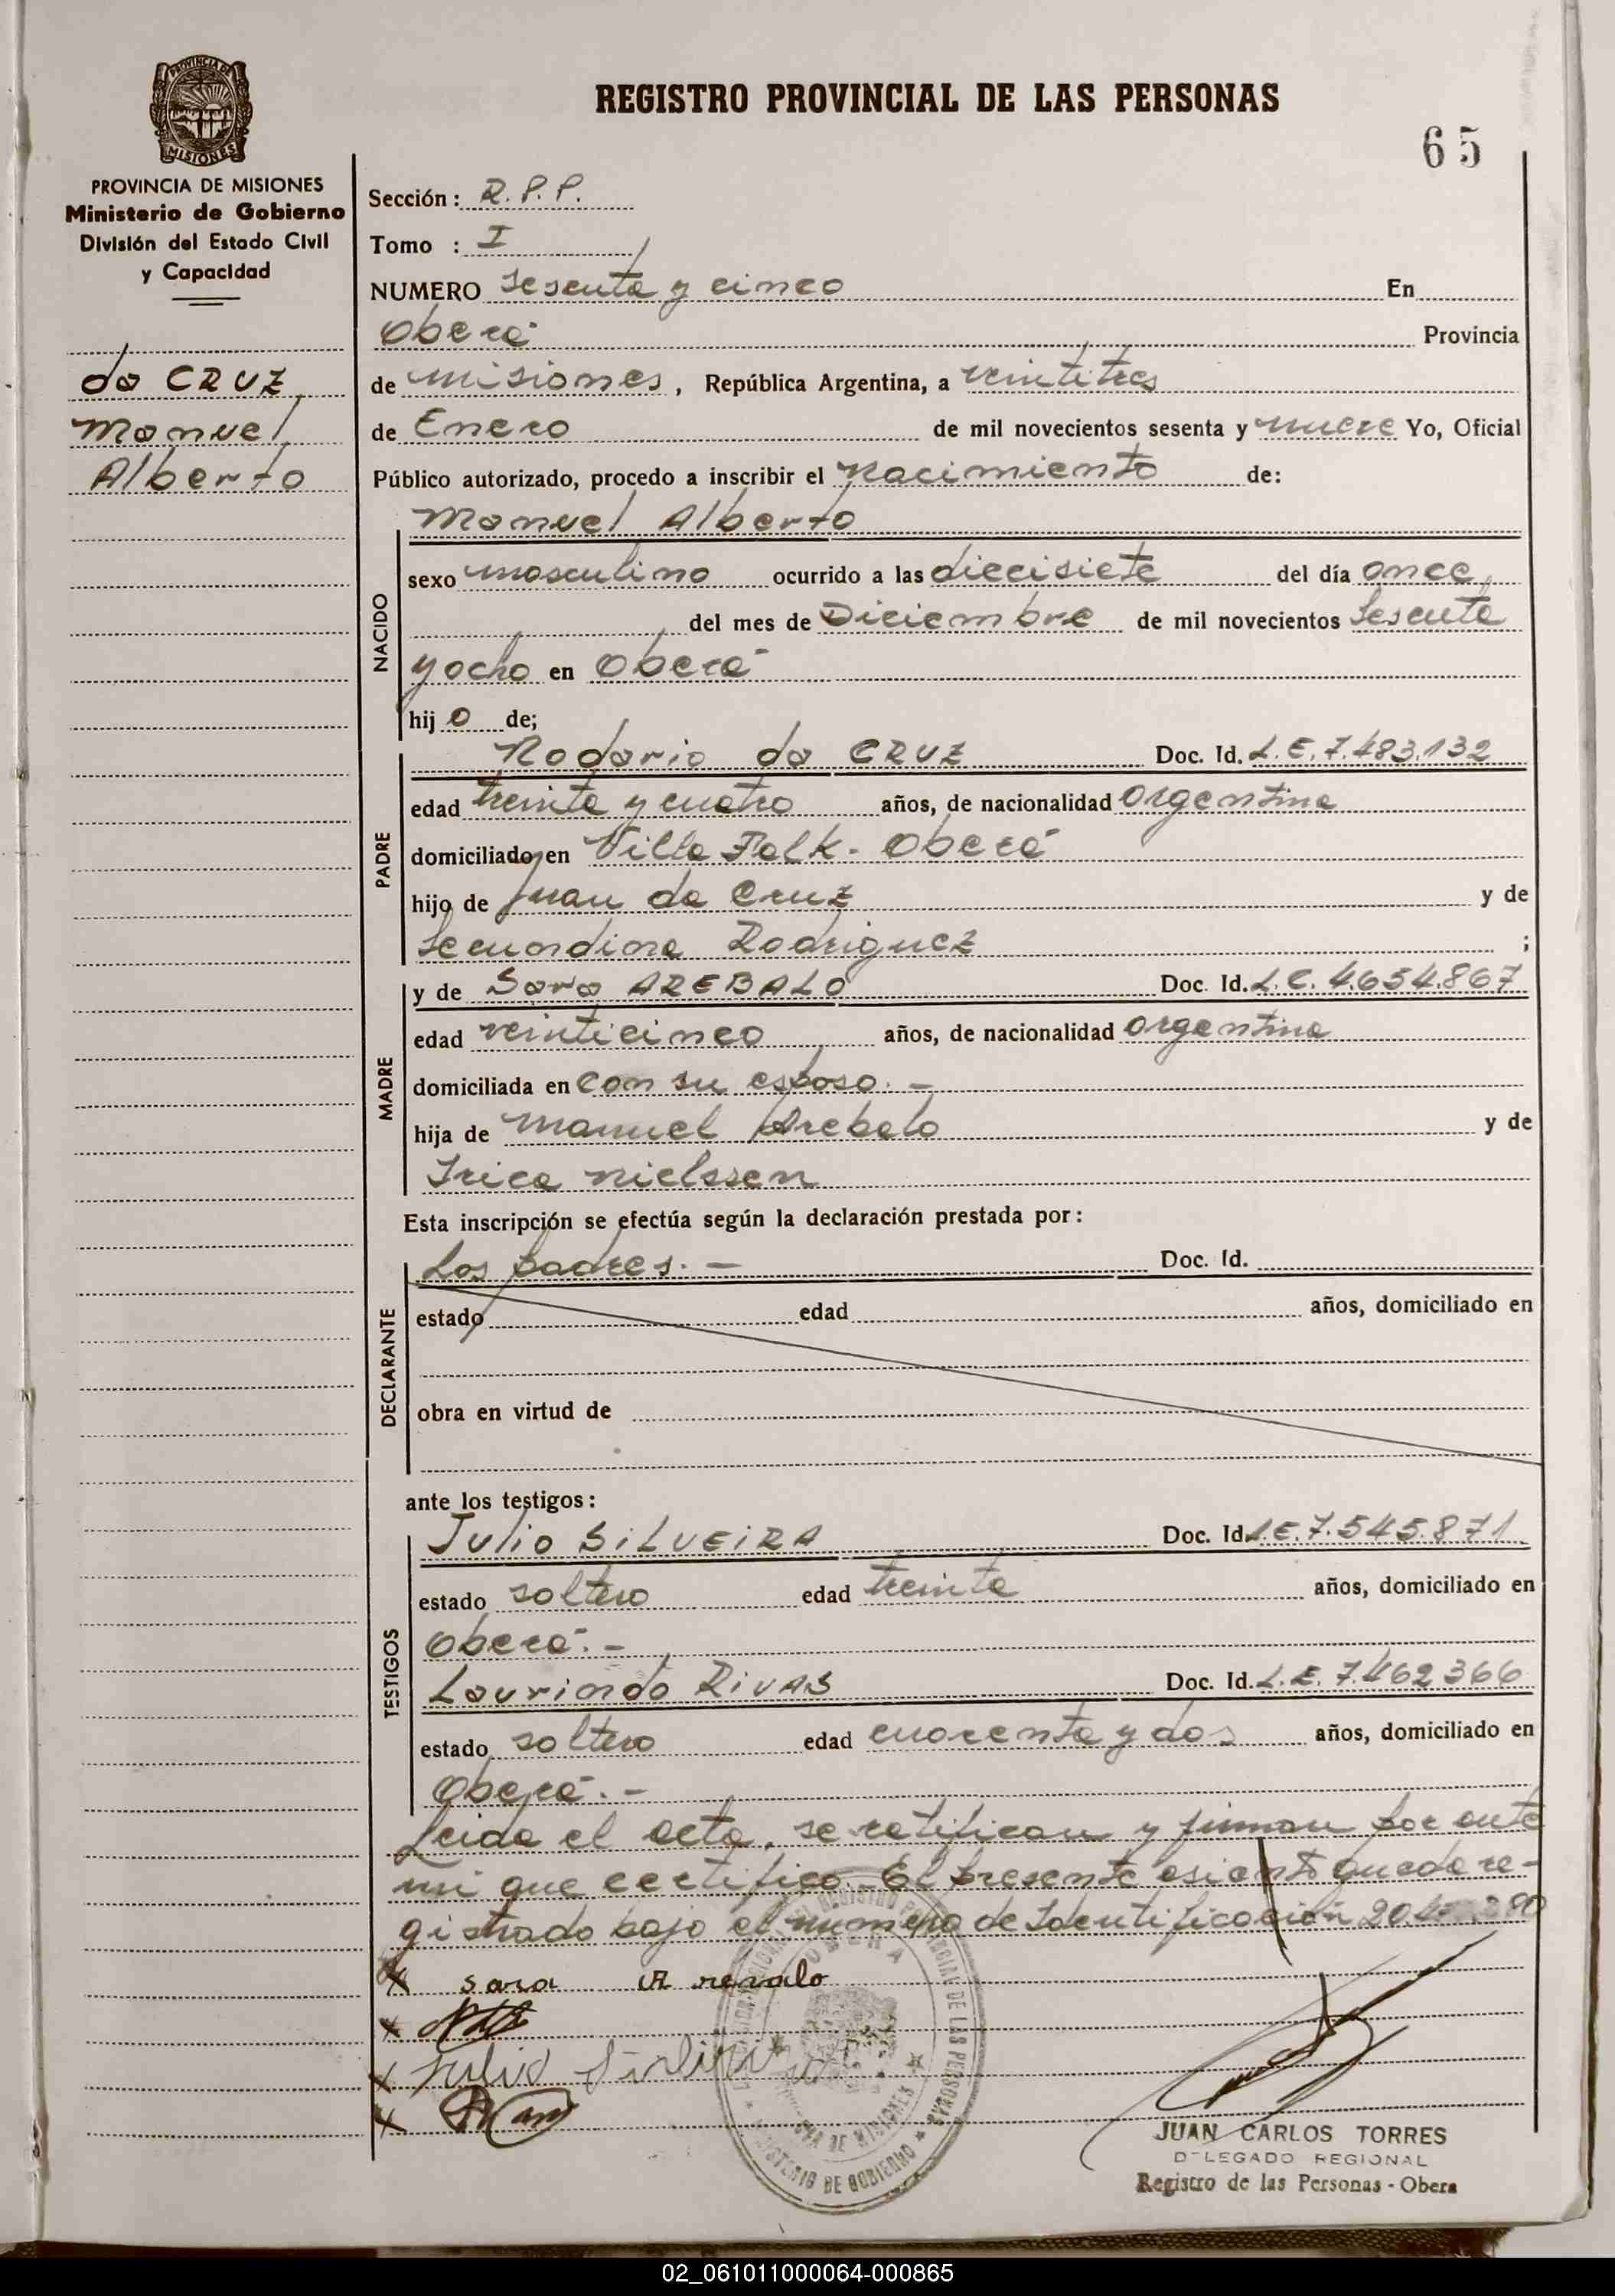 REGISTRO PROVINCIAL DE LAS PERSONAS
65
PROVINCIA DE MISIONES
Ministerio de Gobierno
División del Estado Civil
y Capacidad
da CRUZ
Manuel
Alberto
Sección: R.P.P.
Tomo : I
NUMERO Sesenta y cinco En
Oberá Provincia
de Misiones, República Argentina, a veintitres
de Enero de mil novecientos sesenta y nueve Yo, Oficial
Público autorizado, procedo a inscribir el Nacimiento de:
NACIDO
Manuel Alberto
sexo masculino ocurrido a las diecisiete del día once
del mes de Diciembre de mil novecientos Sesenta
y ocho en Oberá
hijo de;
PADRE
Nodario da CRUZ Doc. Id. L.E. 7.483.132
edad treinta y cuatro años, de nacionalidad Argentina
domiciliado en Villa Falk - Oberá
hijo de Juan da Cruz y de
Secundina Rodriguez ;
MADRE
y de Sara AREBALO Doc. Id. L.C. 4.654.867
edad veinticinco años, de nacionalidad Argentina
domiciliada en con su esposo.-
hija de Manuel Arebalo y de
Irica Nielssen
Esta inscripción se efectúa según la declaración prestada por:
DECLARANTE
Los padres.- Doc. Id.
estado edad años, domiciliado en
obra en virtud de
ante los testigos:
TESTIGOS
Julio SILVEIRA Doc. Id. L.E. 7.545.871
estado soltero edad treinta años, domiciliado en
Oberá.-
Laurindo RIVAS Doc. Id. L.E. 7.462366
estado soltero edad cuarenta y dos años, domiciliado en
Oberá.-
Leida el acta, se ratifican y firman por ante
mi que certifico.- El presente asiento queda re-
gistrado bajo el numero de Identificación 20.4
x sara Arevalo
x
x Julio Silveira
x
REGISTRO PROVINCIAL DE LAS PERSONAS
OBERA
MINISTERIO DE GOBIERNO
JUAN CARLOS TORRES
DELEGADO REGIONAL
Registro de las Personas - Obera
02_061011000064-000865